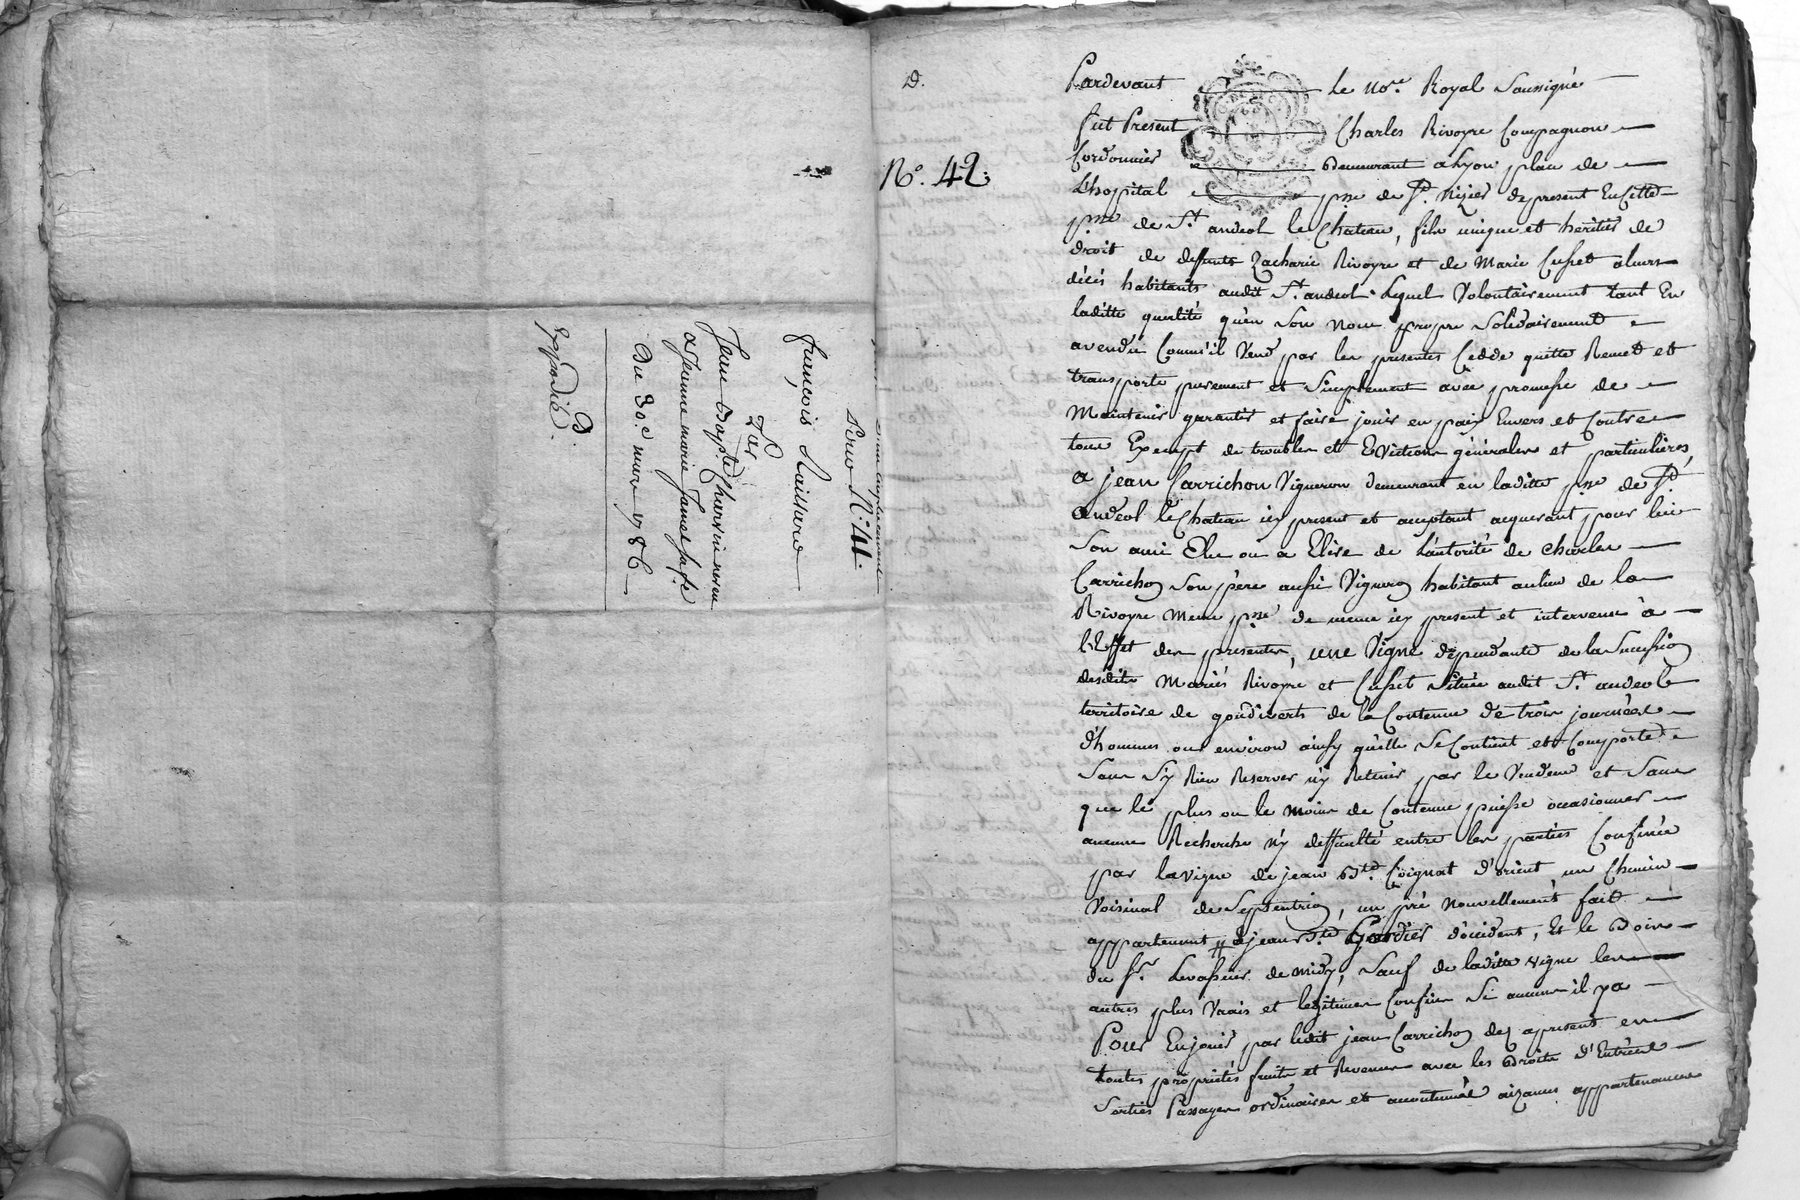 Pour N.° 41.
françois Saissere
Les
Jean Bapt.te Chervin neveu
Du 30.e mars 1786
Expedié
D.
N.° 42.
Pardevant Le No.re Royal Soussigné
fut Present Charles Rivoyre Compagnon
Cordonnier Demeurant a Lyon place de
L'hopital psse de St. Nizier de present En Cette
psse de St. andeol le Chateau, fils unique et heritier de
droit de deffunts Zacharie Rivoyre et de Marie Cusset
décés habitants audit St. andeol Lequel Volontairement tant En
laditte qualité qu'en Son Nom propre Solidairement
a vendu Comm'il Vend par les presentes Cedde quitte Remet et
transporte purement et Simplement avec promesse de
Maintenir garantir et faire jouir en paix Envers et Contre
tous Exempt de troubles et Evictions générales et particulières,
a jean Carrichon Vigneron demeurant en laditte psse de St.
andeol le Chateau icy present et acceptant acquerant pour lui
Son ami Elu ou a Elire de L'autorité de Charles
Carrichon Son père aussi Vigneron habitant au lieu de la
Rivoyre Meme psse de meme icy present et intervenu à
l'Effet des presentes, une Vigne dépendante de la Succession
desdits Mariés Rivoyre et Cusset Située audit St. andeol
territoire de goudiverts de la Contenue de trois journées
d'hommes ou environ ainsy qu'elle Se Contient et Comporte
Sans S'y Rien Reserver n'y Retenir par le Vendeur et Sans
que le plus ou le moins de Contenue puisse occasionner
aucune Recherche n'y difficulté entre les parties Confinée
par la vigne de jean Bte. Coignat d'orient, un Chemin
Voisinal de Septentrion, un pré nouvellement fait
appartenant à jean Bte. d'occident, Et le Bois
du Sr. Levasseur de Midy, Sauf de laditte vigne les
autres plus Vrais et legitimes Confins Si aucuns il y a
Pour En jouir par ledit jean Carrichon dez apresent en
toutes propriétés fruits et Revenus avec les Droits d'Entrées
Sorties Passages ordinaires et accoutumés aizances appartenances